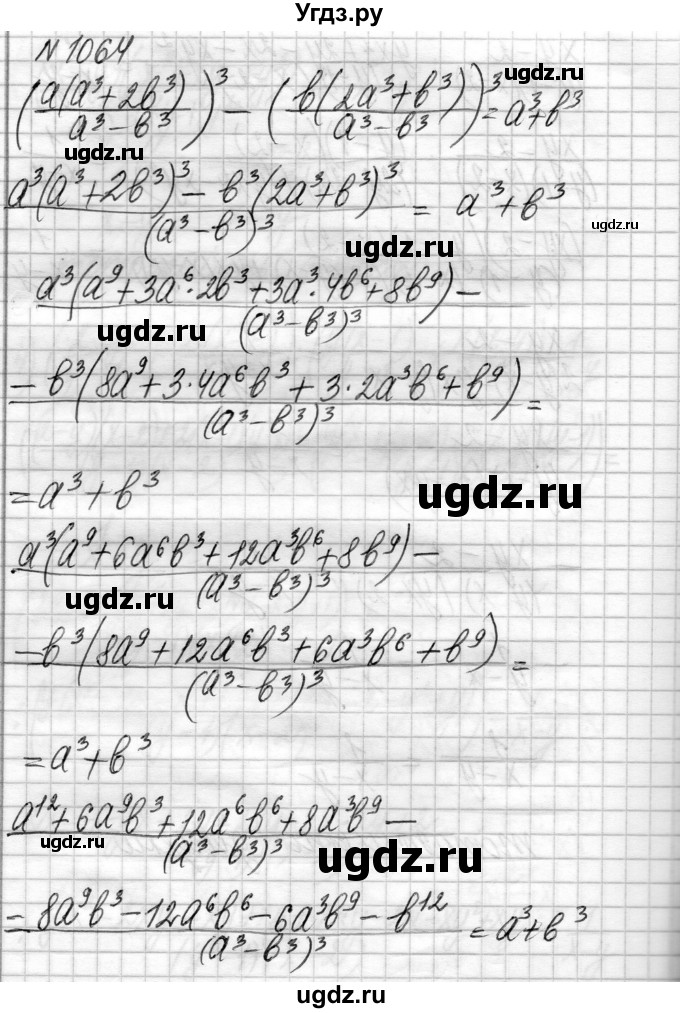 Угдз.ру
N 1064
(a(a³+2b³)/(a³−b³))³ − (b(2a³+b³)/(a³−b³))³ = a³+b³
ugdz.ru
ugdz.ru
(a³(a³+2b³)³ − b³(2a³+b³)³)/(a³−b³)³ = a³+b³
ugdz.ru
ugdz.ru
a³(a⁹+3a⁶·2b³+3a³·4b⁶+8b⁹)−/(a³−b³)³
ugdz.ru
−b³(8a⁹+3·4a⁶b³+3·2a³b⁶+b⁹)/(a³−b³)³ =
= a³+b³
ugdz.ru
a³(a⁹+6a⁶b³+12a³b⁶+8b⁹)−/(a³−b³)³
ugdz.ru
−b³(8a⁹+12a⁶b³+6a³b⁶+b⁹)/(a³−b³)³ =
ugdz.ru
= a³+b³
a¹²+6a⁹b³+12a⁶b⁶+8a³b⁹−/(a³−b³)³
ugdz.ru
ugdz.ru
−8a⁹b³−12a⁶b⁶−6a³b⁹−b¹²/(a³−b³)³ = a³+b³
ugdz.ru
ugdz.ru